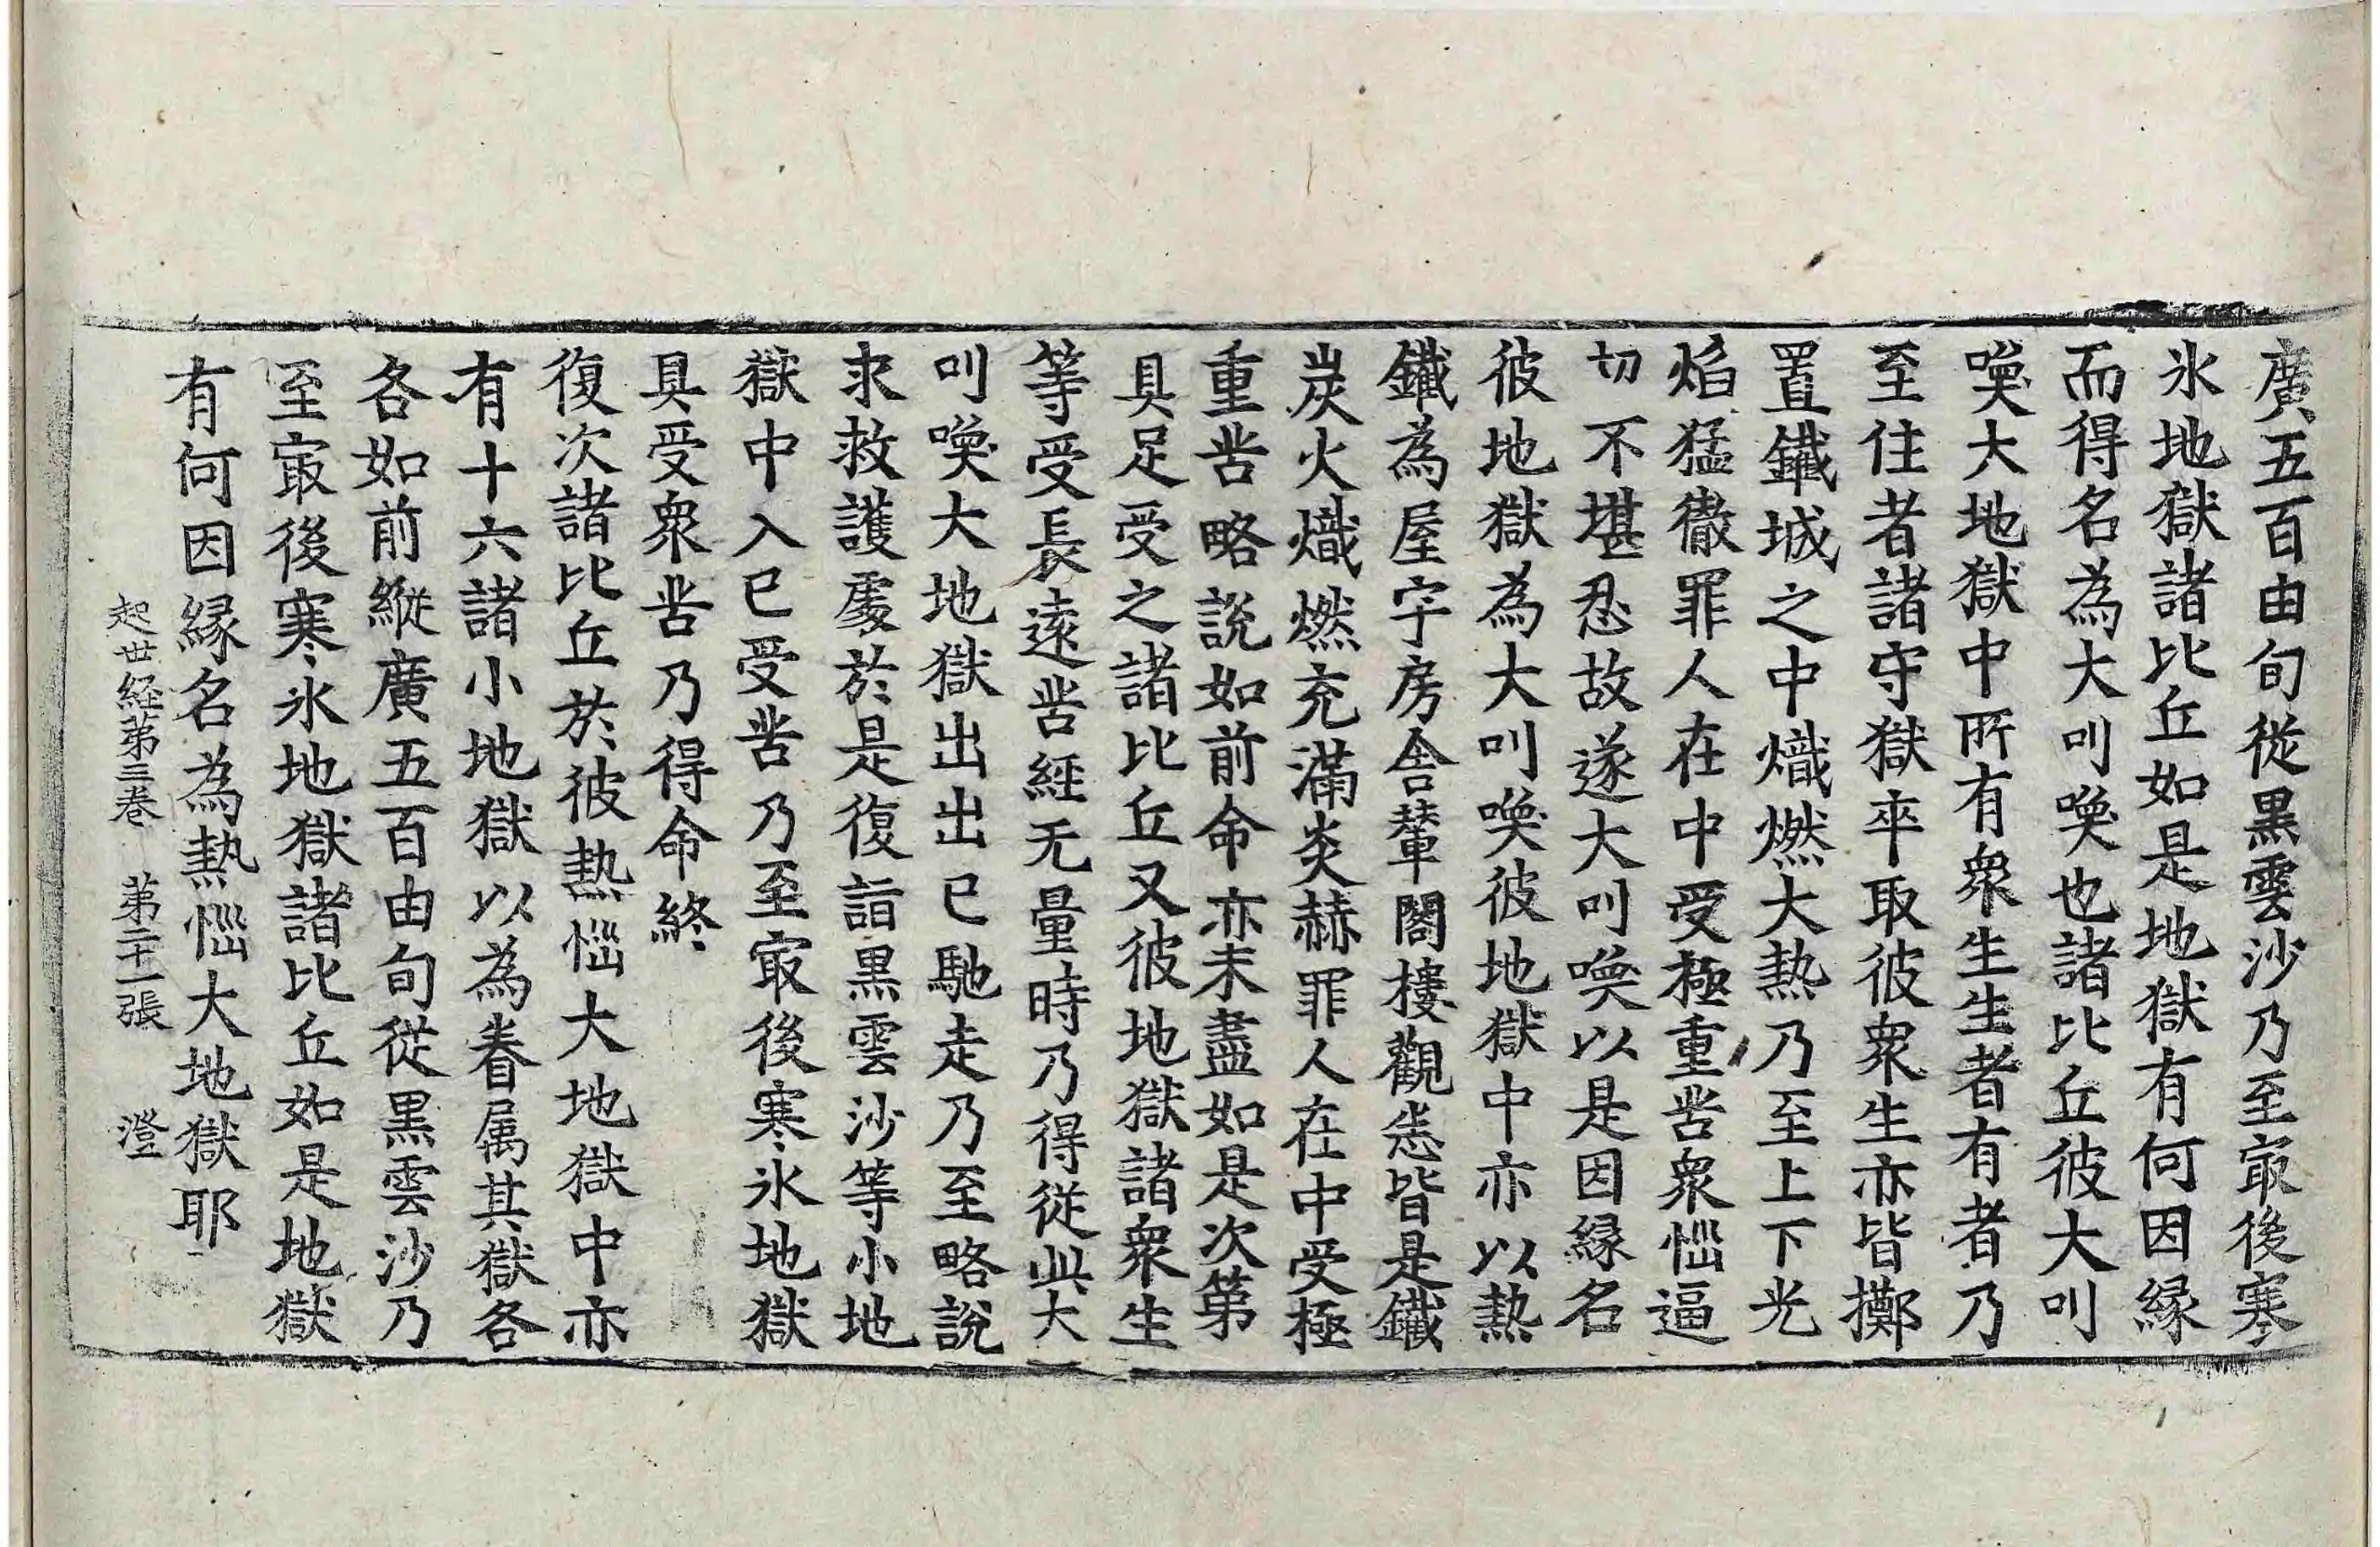 廣五百由旬從黒雲沙乃至㝡後寒
氷地獄諸比丘如是地獄有何因縁
而得名為大叫喚也諸比丘彼大叫
喚大地獄中所有衆生生者有者乃
至住者諸守獄卒取彼衆生亦皆擲
置鐵城之中熾燃大熱乃至上下光
焰猛徹罪人在中受極重苦衆惱逼
切不堪忍故遂大叫喚以是因縁名
彼地獄為大叫喚彼地獄中亦以熱
鐵為屋宇房舍輦閣樓觀悉皆是鐵
炭火熾燃充滿炎赫罪人在中受極
重苦略說如前命亦未盡如是次第
具足受之諸比丘又彼地獄諸衆生
等受長遠苦經无量時乃得從此大
叫喚大地獄出出已馳走乃至略說
求救護處於是復詣黒雲沙等小地
獄中入已受苦乃至㝡後寒氷地獄
具受衆苦乃得命終
復次諸比丘於彼熱惱大地獄中亦
有十六諸小地獄以為眷属其獄各
各如前縱廣五百由旬從黒雲沙乃
至㝡後寒氷地獄諸比丘如是地獄
有何因縁名為熱惱大地獄耶
起世経第三卷 第二十一張 澄